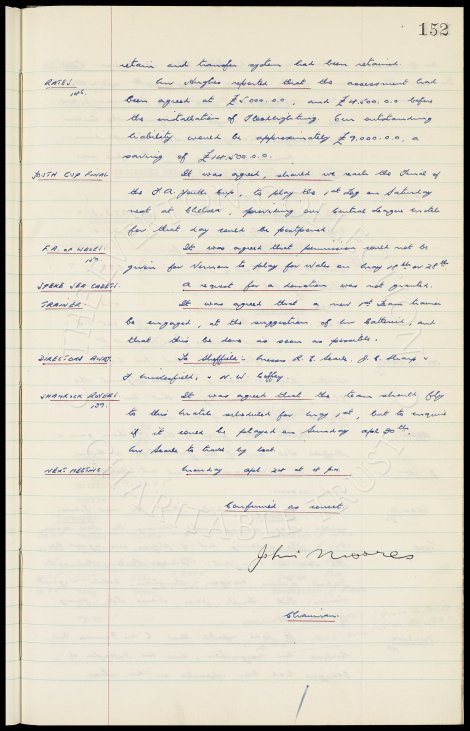 152
retain and transfer system had been retained.
RATES. Mr Hughes reported that the assessment had
146. been agreed at £5.000.0.0, and £4.500.0.0 before
the installation of Floodlighting. Our outstanding
liability would be approximately £9,000.0.0, a
saving of
YOUTH CUP FINAL It was agreed, should we reach the Final of
the F.A. Youth Cup, to play the 1st Leg on Saturday
next at Chelsea, providing our Central League match
for that day could be postponed.
F.A. OF WALES. It was agreed that permission could not be
given for Vernon to play for Wales on May
SPEKE SEA CADETS. A request for a donation was not granted.
TRAINER. It was agreed that a new 1st Team trainer
be engaged, at the suggestion of Mr Catterick, and
that this be done as soon as possible.
DIRECTORS AWAY. To Sheffield:- Messrs R. E. Searle, J. C. Sharp &
F. Micklesfield, & N. W. Coffey.
SHAMROCK ROVERS. It was agreed that the team should fly
139. to this match scheduled for May 1st, but to enquire
if it could be played on Sunday Apl 30th.
Mr Searle to travel by boat.
NEXT MEETING Monday Apl at 4 pm.
Confirmed as correct
John Moores
Chairman.
THE EVERTON COLLECTION
CHARITABLE TRUST